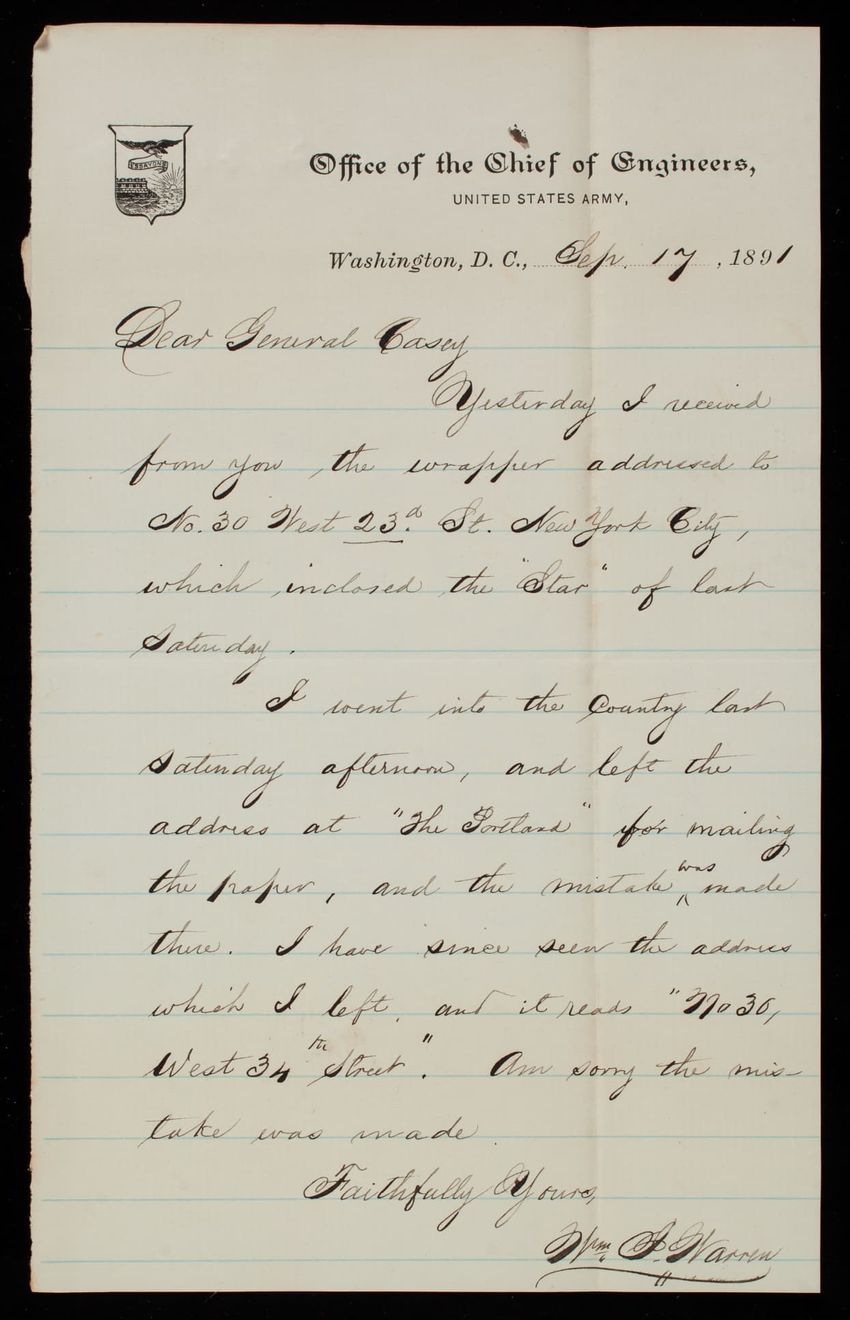 ESSAYONS
Office of the Chief of Engineers,
UNITED STATES ARMY,
Washington, D. C., Sep. 17, 1891
Dear General Casey
Yesterday I received
from you, the wrapper addressed to
No. 30 West 23d. St. New York City,
which inclosed the "Star" of last
Saturday.
I went into the Country last
Saturday afternoon, and left the
address at "The Portland" for mailing
the paper, and the mistake was made
there. I have since seen the address
which I left, and it reads "No 30,
West 34th Street". Am sorry the mis-
take was made.
Faithfully Yours,
Wm. J. Warren